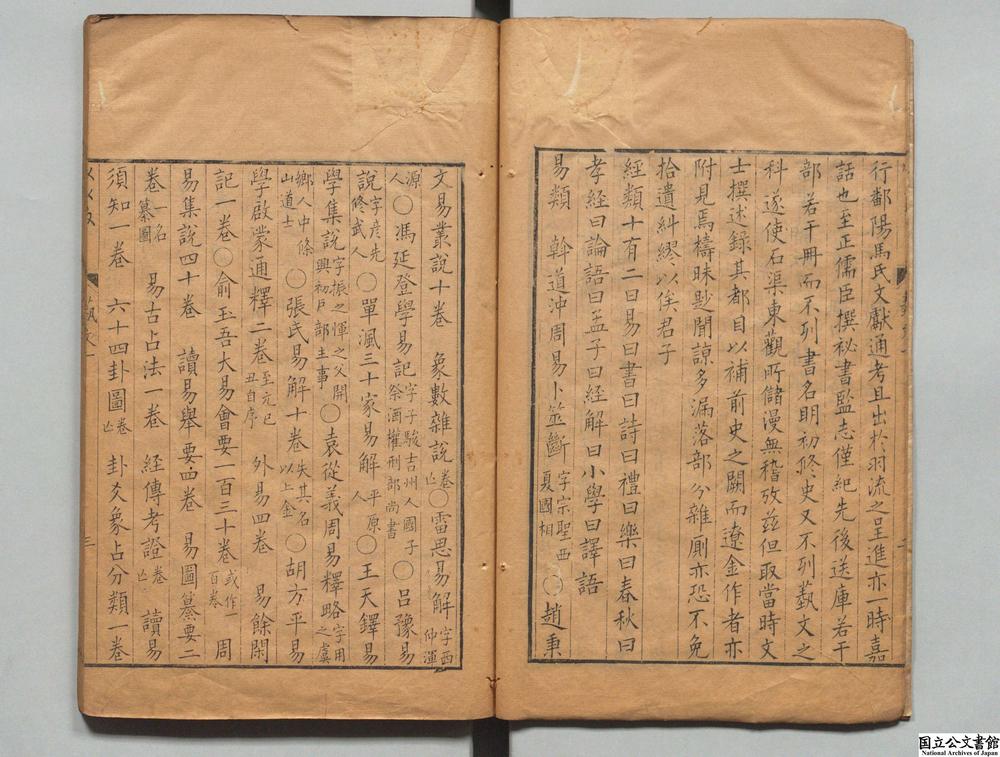 行鄱陽馬氏文獻通考且出於羽流之呈進亦一時嘉
話也至正儒臣撰祕書監志僅紀先後送庫若干
部若干冊而不列書名明初修史又不列蓺文之
科遂使石渠東觀所儲漫無稽攷茲但取當時文
士撰述錄其都目以補前史之闕而遼金作者亦
附見焉檮昧尟聞諒多漏落部分雜厠亦恐不免
拾遺糾繆以俟君子
經類十有二曰易曰書曰詩曰禮曰樂曰春秋曰
孝經曰論語曰孟子曰經解曰小學曰譯語
易類 斡道沖周易卜筮斷字宗聖西夏國相○趙秉
文易叢說十卷 象數雜說卷亡○雷思易解字西仲渾
源人○馮延登學易記字子駿吉州人國子祭酒權刑部尚書○呂豫易
說字彥先修武人○單渢三十家易解平原人○王天鐸易
學集說字振之惲之父開興初戶部主事○袁從義周易釋略字用之虞
鄉人中條山道士○張氏易解十卷失其名以上金○胡方平易
學啟蒙通釋二卷至元己丑自序 外易四卷 易餘閑
記一卷○俞玉吾大易會要一百三十卷或作一百卷 周
易集說四十卷 讀易舉要四卷 易圖纂要二
卷一名纂圖 易古占法一卷 經傳考證卷亡 讀易
須知一卷 六十四卦圖卷亡 卦爻象占分類一卷
藝文一
三
国立公文書館
National Archives of Japan